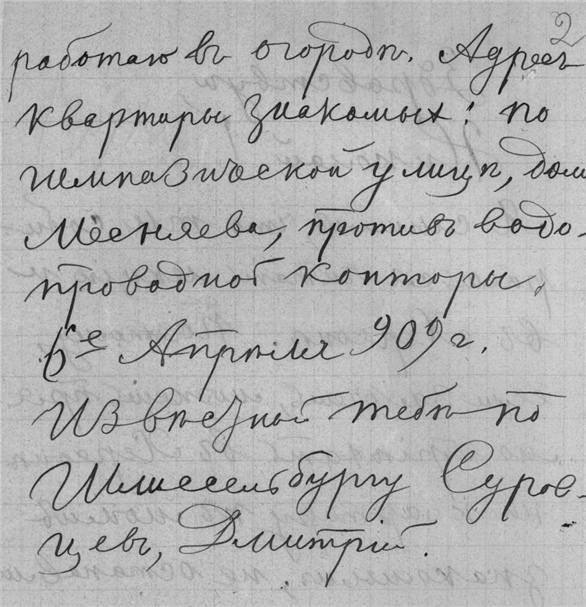 2
работаю въ огородѣ. Адресъ
квартиры знакомыхъ: по
Гимназической улицѣ, домъ
Меєняева, противъ водо-
проводной конторы.
6е Апрѣля 909 г.
Извѣстный тебѣ по
Шлиссельбургу Суров-
цевъ, Дмитрій.